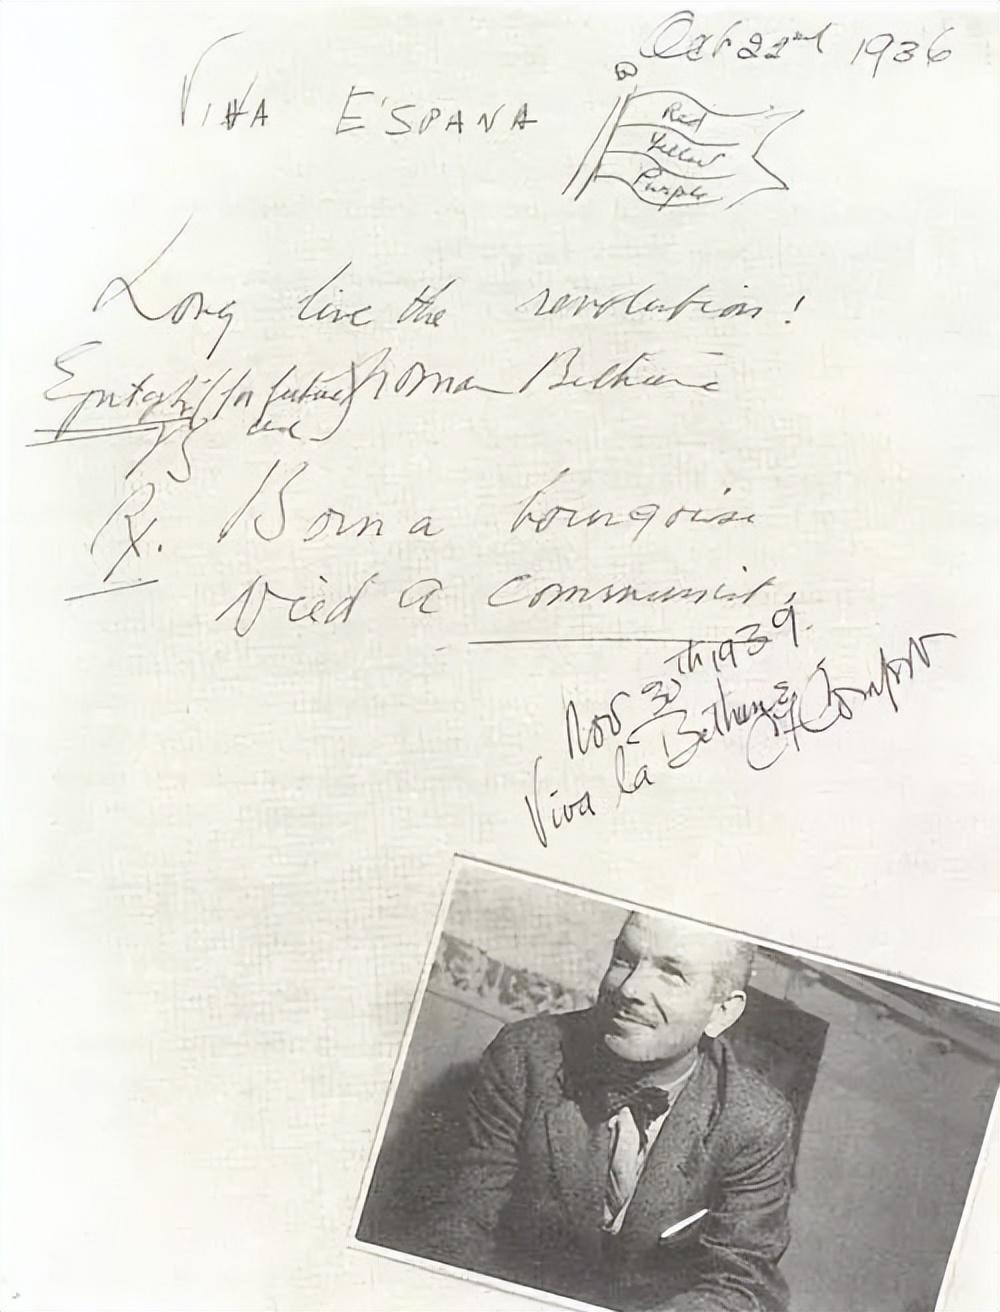 Oct 22nd 1936
VIVA ESPANA
Red
Yellow
Purple
Long live the revolution!
Epitaph for future Norman Bethune
Rx. Born a bourgoise
Died a communist.
Nov 30th 1939.
Viva la Bethune